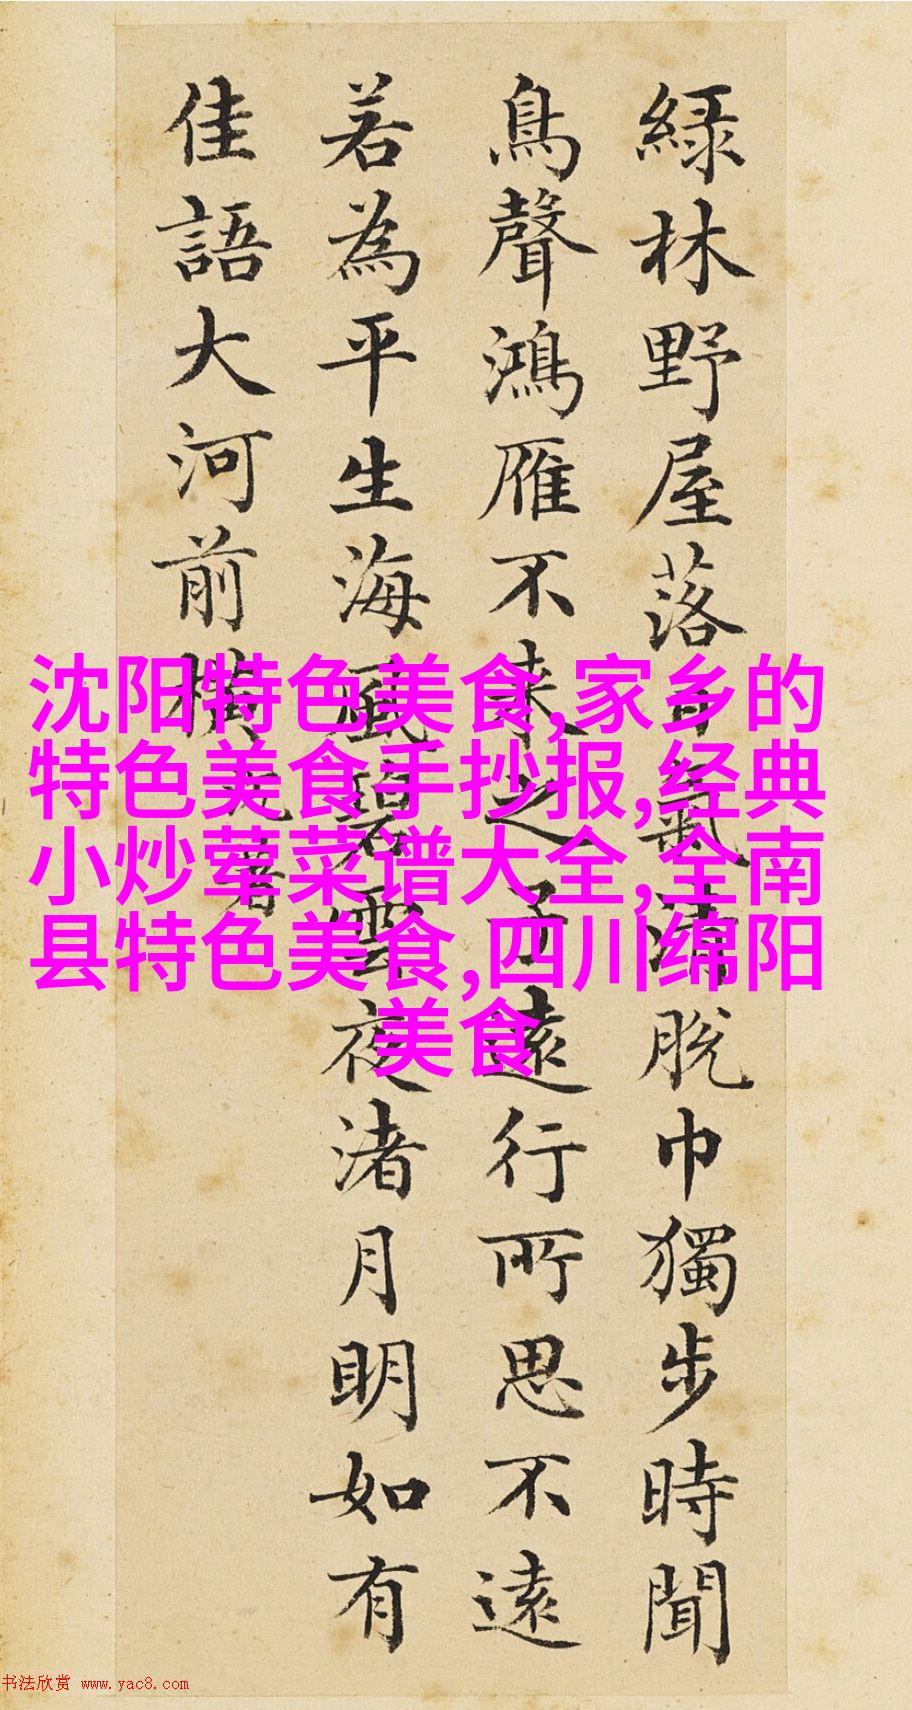 綠林野屋落日氣清脫巾獨步時聞
鳥聲鴻雁不來之子遠行所思不遠
若為平生海風碧雲夜渚月明如有
佳語大河前橫
沈阳特色美食,家乡的
特色美食手抄报,经典
小炒荤菜谱大全,全南
县特色美食,四川绵阳
美食
书法欣赏 www.yac8.com